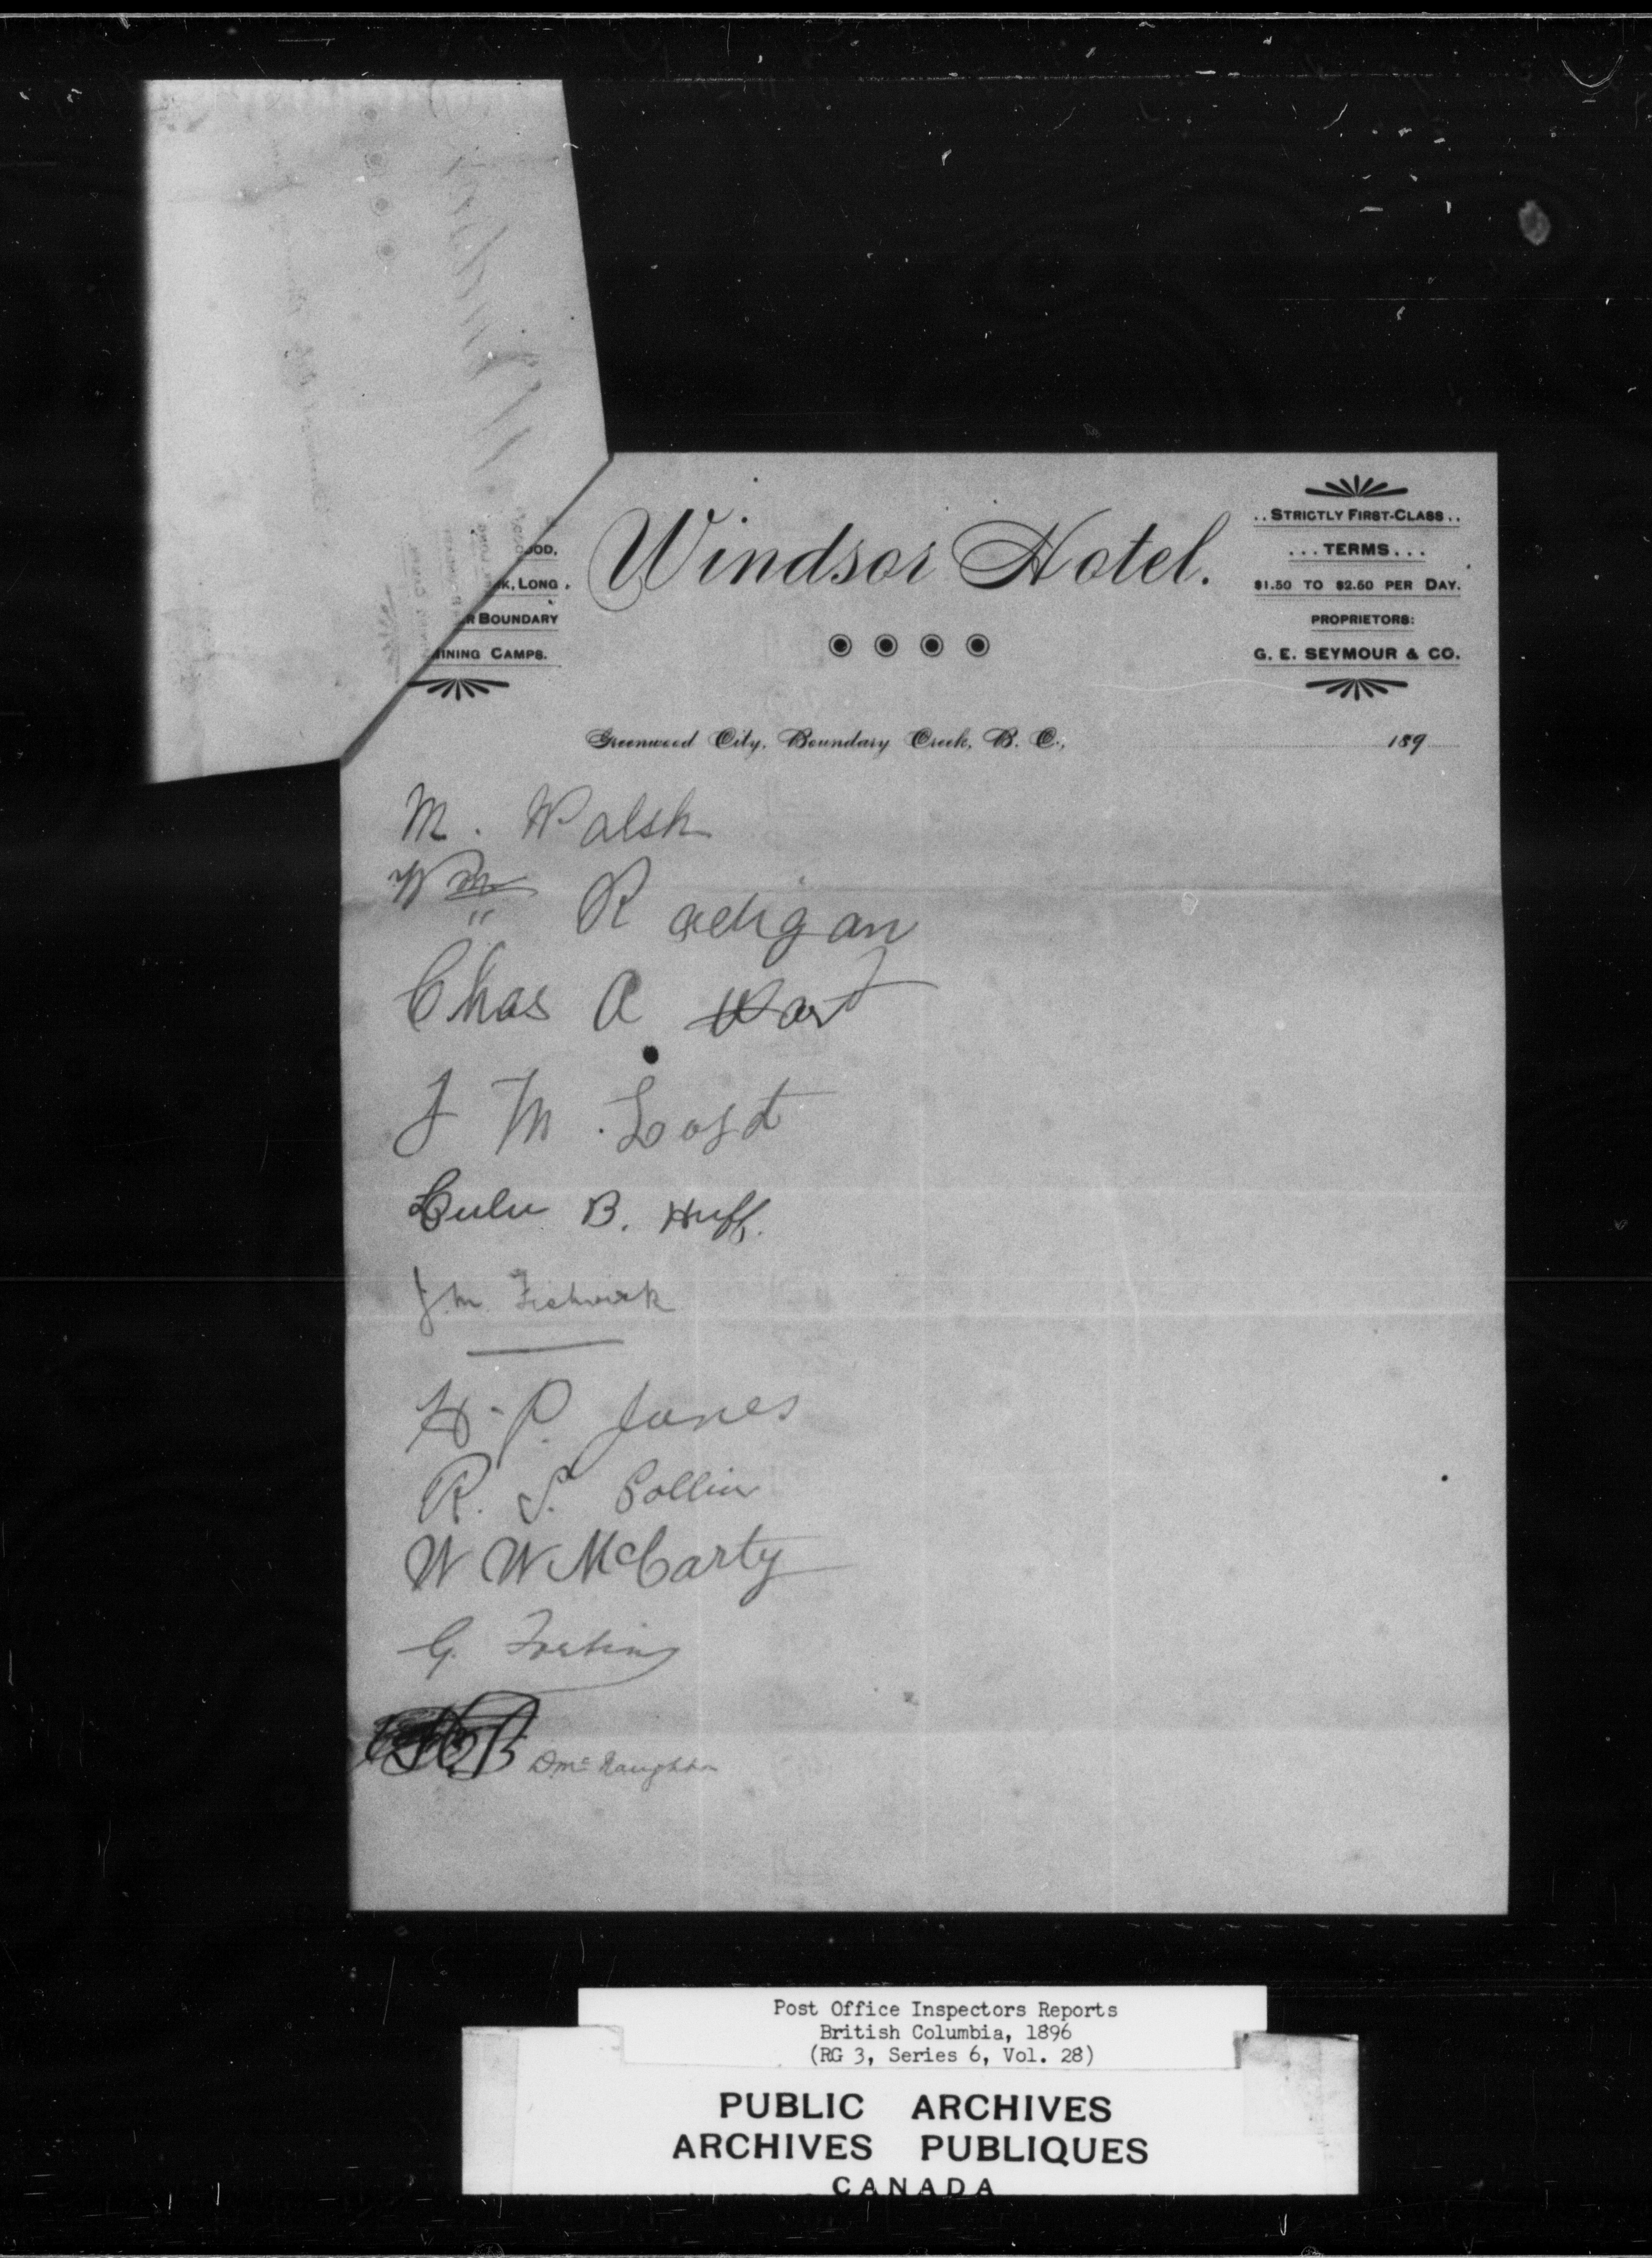 OOD,
K, LONG.
R BOUNDARY
INING CAMPS.
Windsor Hotel.
..STRICTLY FIRST-CLASS..
...TERMS...
$1.50 TO $2.50 PER DAY.
PROPRIETORS:
G. E. SEYMOUR & CO.
Greenwood City, Boundary Creek, B. C., 189
M. Walsh
Wm Radigan
Chas A
J M
Lulu B. Huff.
J.M. Fishwick
H. P. Jones
R. S. Collin
W W McCarty
G. Fortin
D Mc Naughton
Post Office Inspectors Reports
British Columbia, 1896
(RG 3, Series 6, Vol. 28)
PUBLIC ARCHIVES
ARCHIVES PUBLIQUES
CANADA